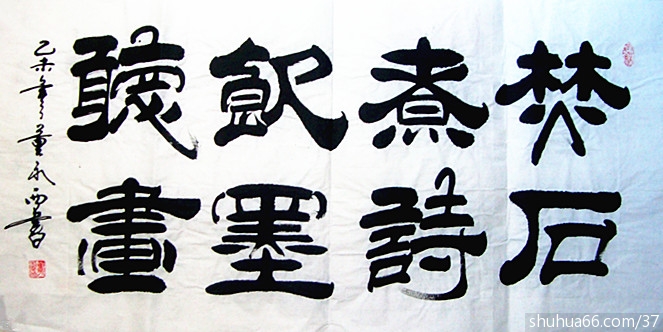 焚石
煮詩
飲墨
聽畫
乙未年董永西書
shuhua66.com/37